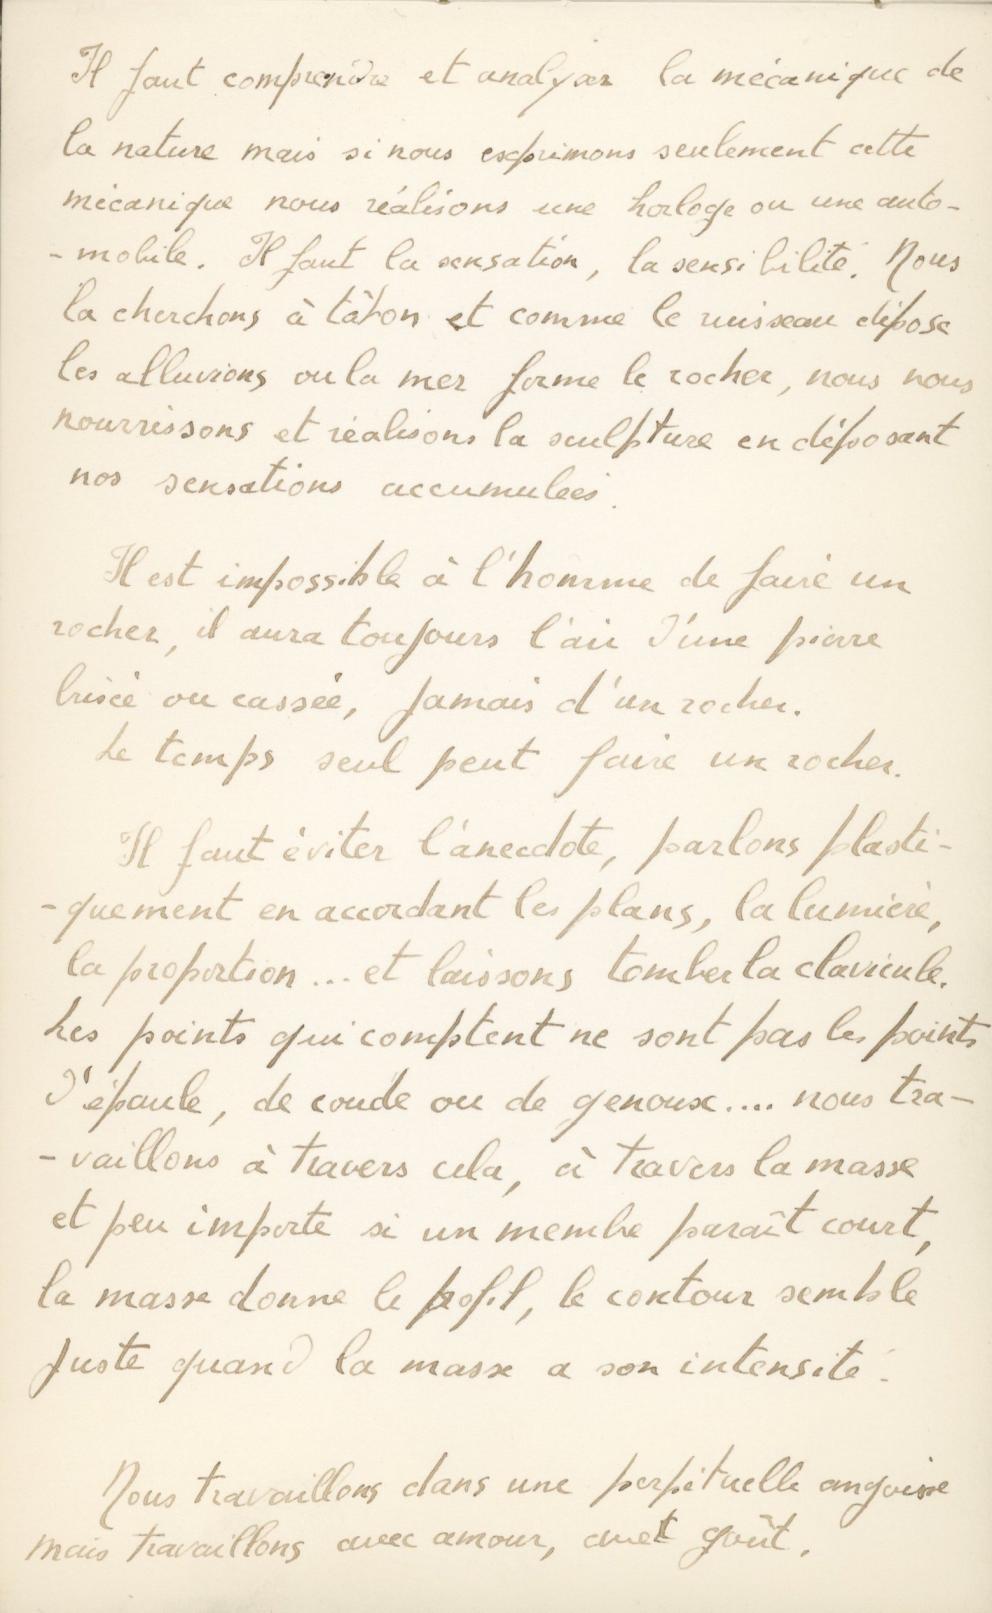 Il faut comprendre et analyser la mécanique de
la nature mais si nous exprimons seulement cette
mécanique nous réalisons une horloge ou une auto-
-mobile. Il faut la sensation, la sensibilité. Nous
la cherchons à tâton et comme le ruisseau dépose
les alluvions ou la mer forme le rocher, nous nous
nourrissons et réalisons la sculpture en déposant
nos sensations accumulées.
Il est impossible à l'homme de faire un
rocher, il aura toujours l'air d'une pierre
brisée ou cassée, jamais d'un rocher.
Le temps seul peut faire un rocher.
Il faut éviter l'anecdote, parlons plasti-
-quement en accordant les plans, la lumière,
la proportion... et laissons tomber la clavicule.
Les points qui comptent ne sont pas les points
d'épaule, de coude ou de genoux.... nous tra-
-vaillons à travers cela, à travers la masse
et peu importe si un membre paraît court,
la masse donne le profil, le contour semble
juste quand la masse a son intensité.
Nous travaillons dans une perpétuelle angoisse
mais travaillons avec amour, avec goût.